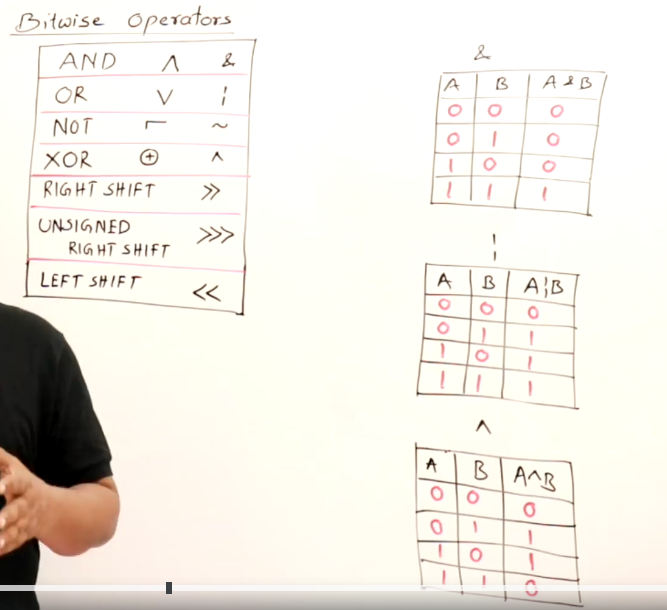 Bitwise Operators
AND ∧ &
OR ∨ ¦
NOT ⌐ ~
XOR ⊕ ^
RIGHT SHIFT >>
UNSIGNED >>>
RIGHT SHIFT
LEFT SHIFT <<
&
A B A&B
0 0 0
0 1 0
1 0 0
1 1 1
¦
A B A¦B
0 0 0
0 1 1
1 0 1
1 1 1
^
A B A^B
0 0 0
0 1 1
1 0 1
1 1 0